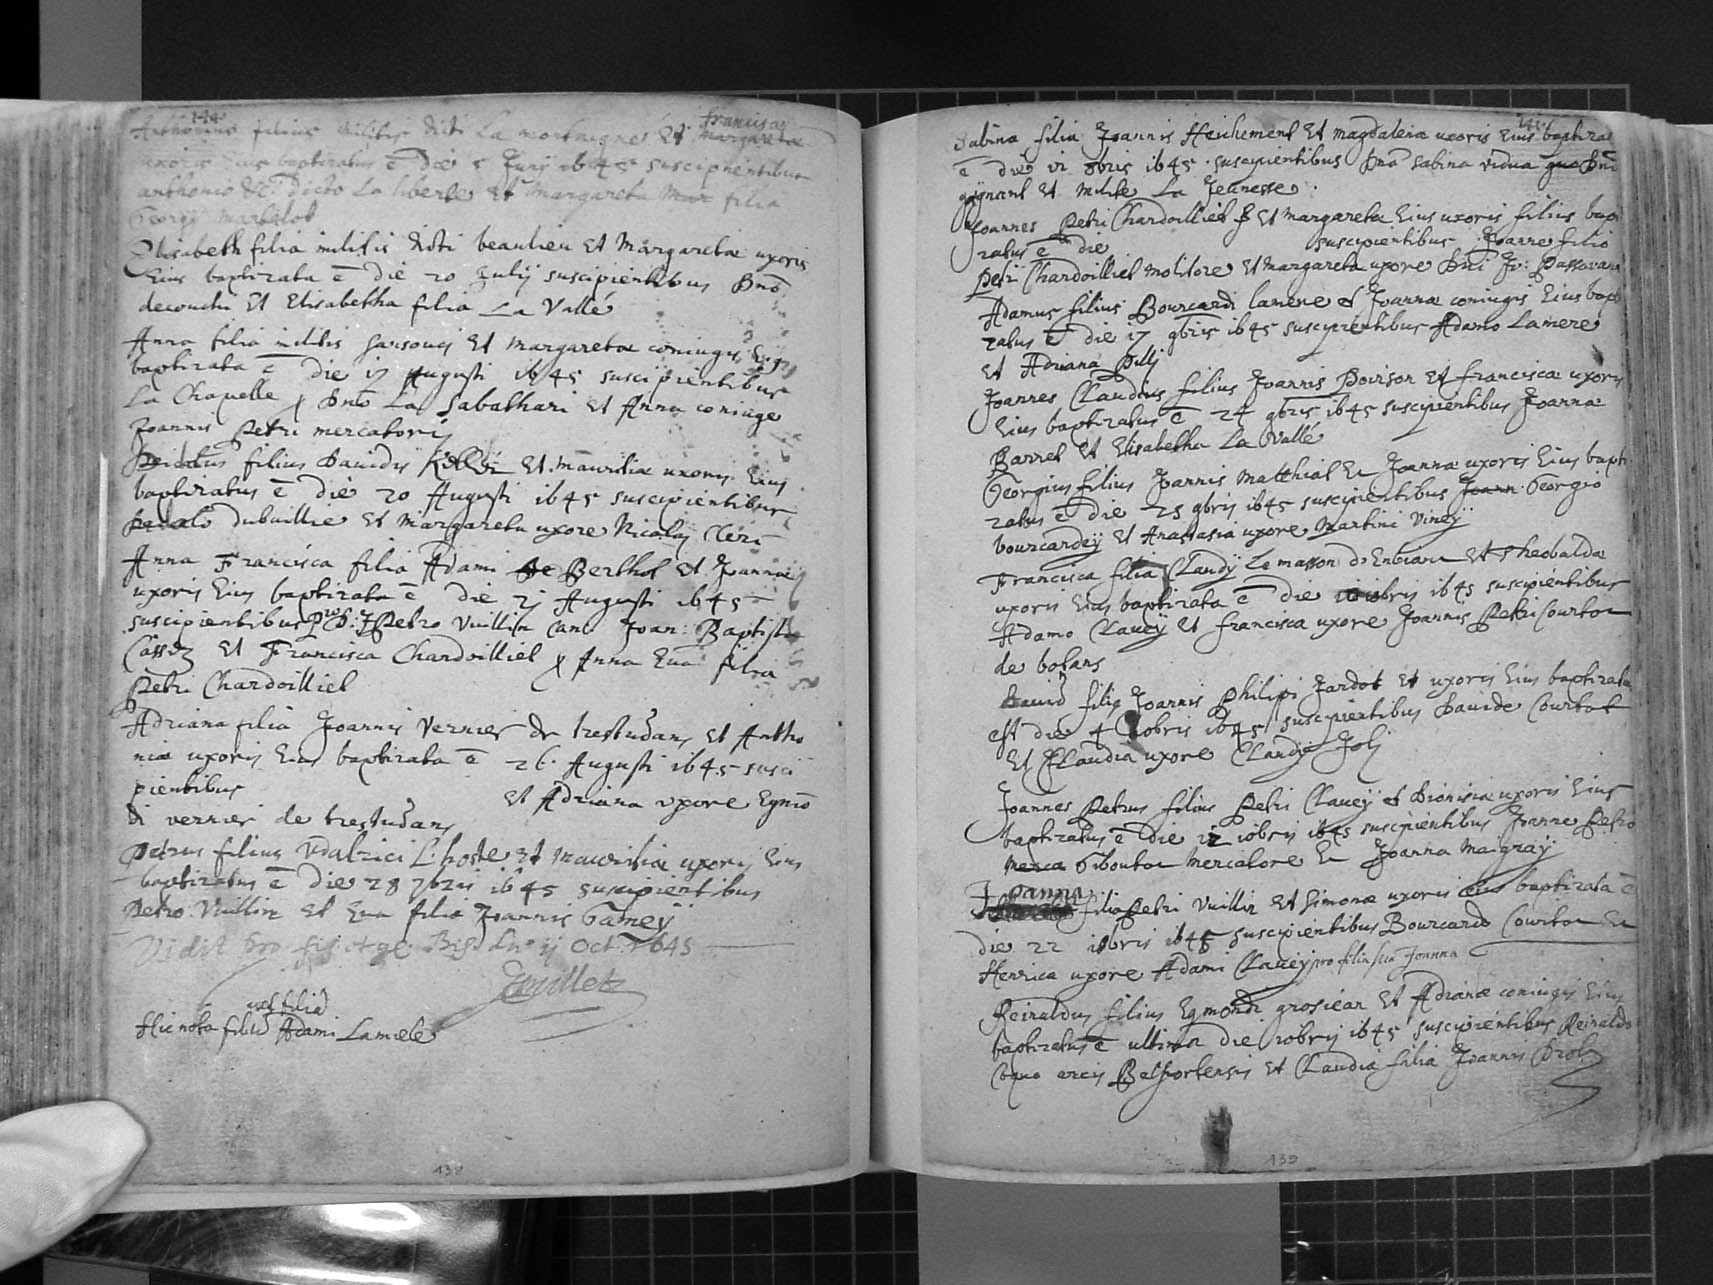 144
Anthonius filius militis dicti La montaigne Et francisca margareta
uxoris Eius baptizatus ē die 5 Junij 1645 suscipientibus
anthonio dicto La liberte et margareta filia
Georgij
Elisabeth filia militis dicti beaulieu et Margaretae uxoris
Eius baptizata ē die 20 Julij suscipientibus Dno
Et Elisabetha filia La Vallé
Anna filia militis sansoucij Et margaretae coniugis Eius
baptizata ē die 17 Augusti 1645 suscipientibus
La Chapelle Dno La Sabathari et Anna coniuge
Joannis Petri mercatoris
filius Davidis et mauritiae uxoris Eius
baptizatus ē die 20 Augusti 1645 suscipientibus
dubaillie et margareta uxore Nicolaij Cleri
Anna Francisca filia Adami de Berthol et Joannae
uxoris Eius baptizata ē die 21 Augusti 1645
suscipientibus Petro Vuillin can: Joan: Baptista
et Francisca Chardoilliet Anna Eva filia
Petri Chardoilliet
Adriana filia Joannis Vernier de trestudans et Antho
niae uxoris Eius baptizata ē 26 Augusti 1645 susci
pientibus et Adriana uxore Egmon
di vernier de trestudans
Petrus filius Vdalrici L'hoste et mauritiae uxoris Eius
baptizatus ē die 28 7bris 1645 suscipientibus
Petro Vuillin et Eva filia Joannis Gameij
Vidit pro Oct. 1645
vel filia
Hic nota filiū Adami Lamele
138
Sabina filia Joannis Heichement Et magdalena uxoris Eius baptiza
ē die 8bris 1645 suscipientibus Dna Sabina vidua quo Dni
Et milite La Jeunesse
Joannes Petri Chardoilliet Et margareta Eius uxoris filius bapt
zatus ē die suscipientibus Joanne filio
Petri Chardoilliet molitore et margareta uxore Dni Jo: Passavant
Adamus filius Bourcardi lamere et Joannae coniugis Eius bapti
zatus ē die 17 9bris 1645 suscipientibus Adamo Lamere
et Adriana Pillj
Joannes Claudius filius Joannis Poirson et francisca uxoris
Eius baptizatus ē 24 9bris 1645 suscipientibus Joanna
Barret et Elisabetha La Vallé
Georgius filius Joannis Matthiat Et Joannae uxoris Eius bapti
zatus ē die 25 9bris 1645 suscipientibus Joann Georgio
bourcardeij et Anastasia uxore Martini Vineij
Francisca filia Claudij Le masson et Theobalda
uxoris Eius baptizata ē die 10bris 1645 suscipientibus
Adamo Claueij et francisca uxore Joannis Petri Courtot
de botans
David filius Joannis Philipi Jardot et uxoris Eius baptizata
est die 4 10bris 1645 suscipientibus Davide Courtot
Et Claudia uxore Claudij Jolj
Joannes Petrus filius Petri Claueij et Dionisia uxoris Eius
baptizatus ē die 12 10bris 1645 suscipientibus Joanne Petro
merca Giboutot mercatore Et Joanna Maigraij
Joanna filia Petri Vuillin et Simonae uxoris eius baptizata ē
die 22 10bris 1645 suscipientibus Bourcardo Courtot Et
Henrica uxore Adami Claueij pro filia sua Joanna
Reinaldus filius Egmondi grosiean et Adriane coniugis Eius
baptizatus ē ultima die 10bris 1645 suscipientibus Reinaldo
arcis Belfortensis et Claudia filia Joannis
139